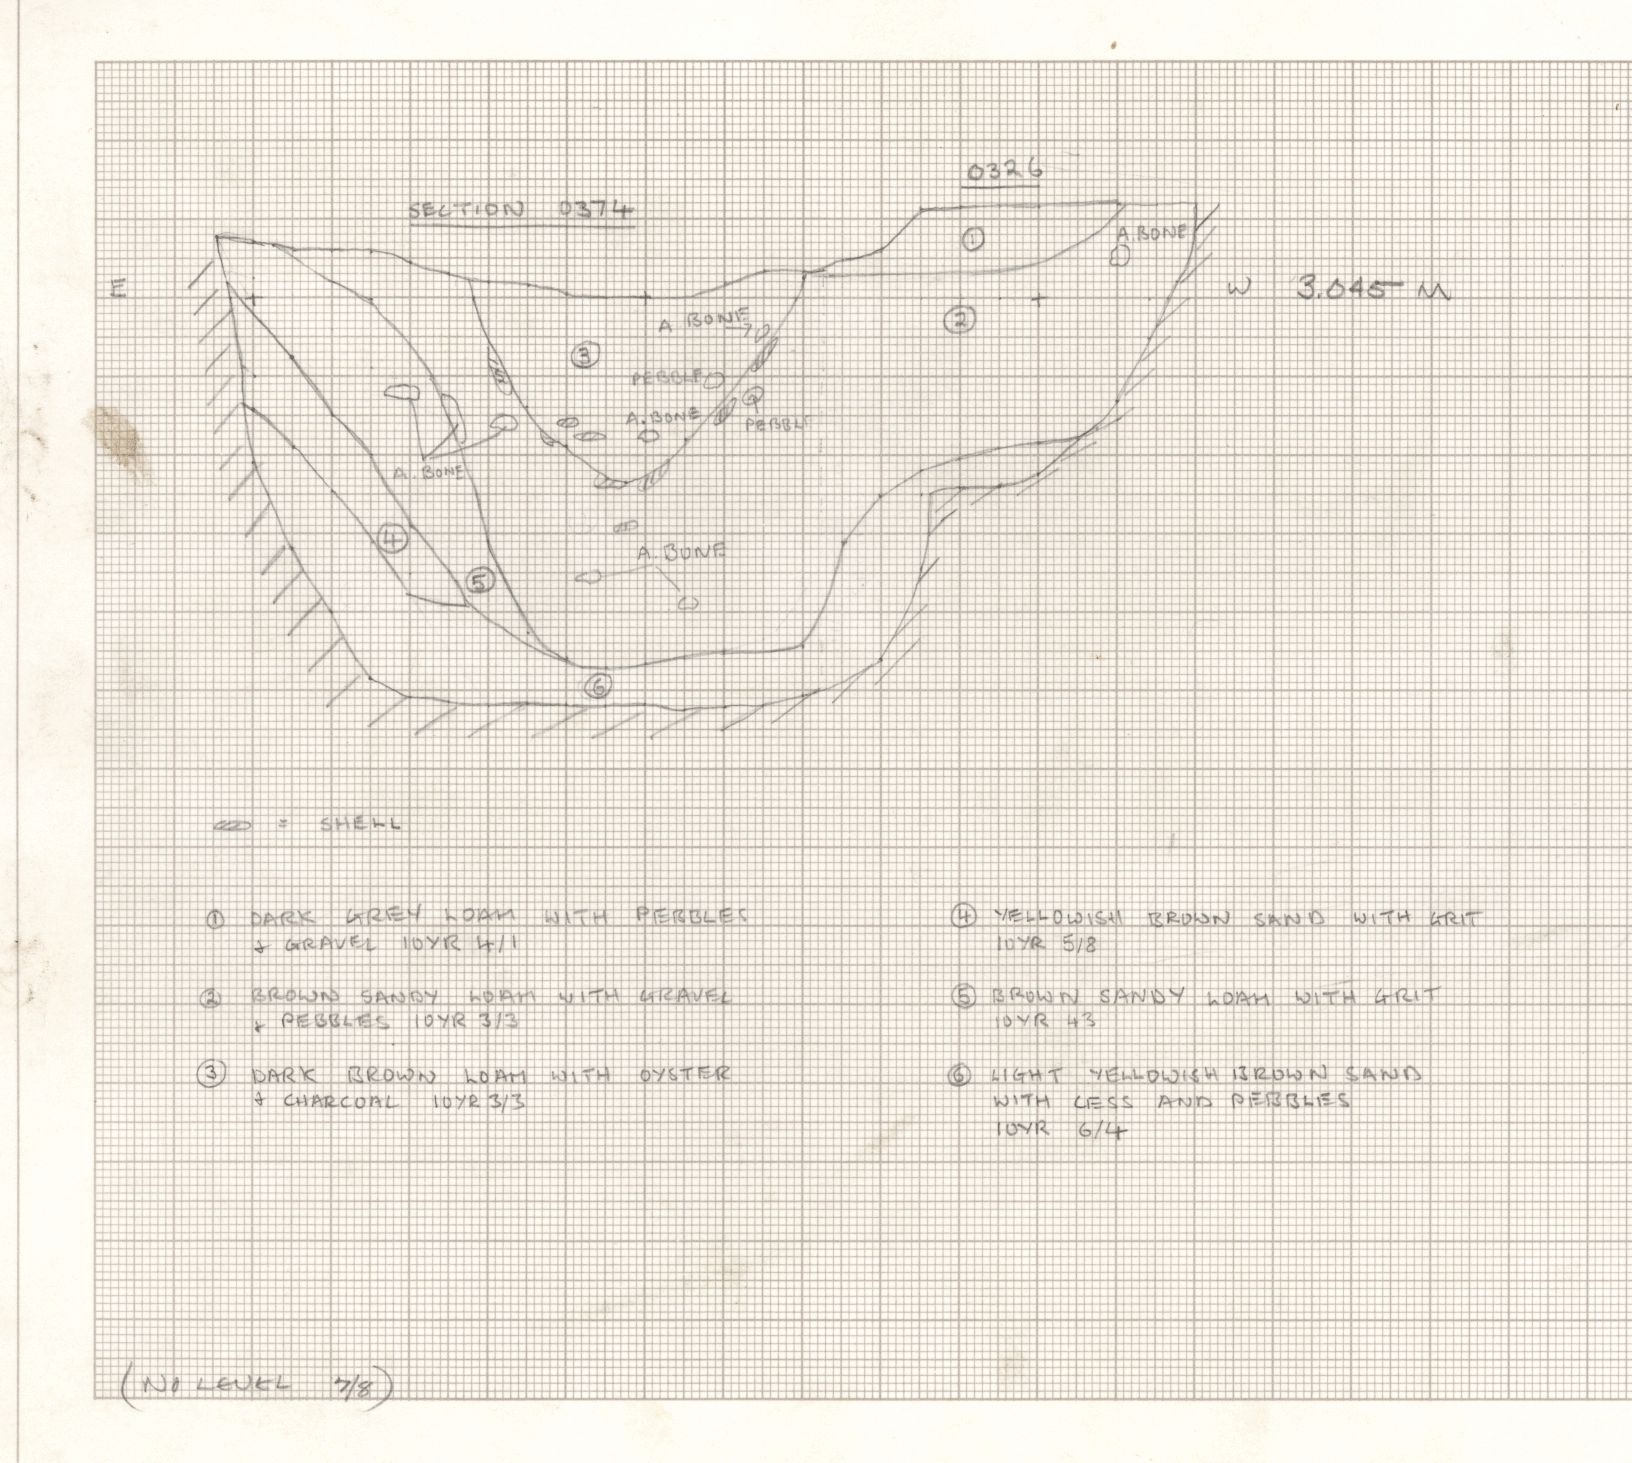 0326
SECTION 0374
①
A.BONE
E
W 3.045 M
②
A BONE
③
PEBBLE
A.BONE
PEBBLE
A.BONE
④
A.BONE
⑤
⑥
= SHELL
① DARK GREY LOAM WITH PEBBLES
+ GRAVEL 10YR 4/1
② BROWN SANDY LOAM WITH GRAVEL
+ PEBBLES 10YR 3/3
③ DARK BROWN LOAM WITH OYSTER
+ CHARCOAL 10YR 3/3
④ YELLOWISH BROWN SAND WITH GRIT
10YR 5/8
⑤ BROWN SANDY LOAM WITH GRIT
10YR 43
⑥ LIGHT YELLOWISH BROWN SAND
WITH LESS AND PEBBLES
10YR 6/4
(NO LEVEL 7/8)